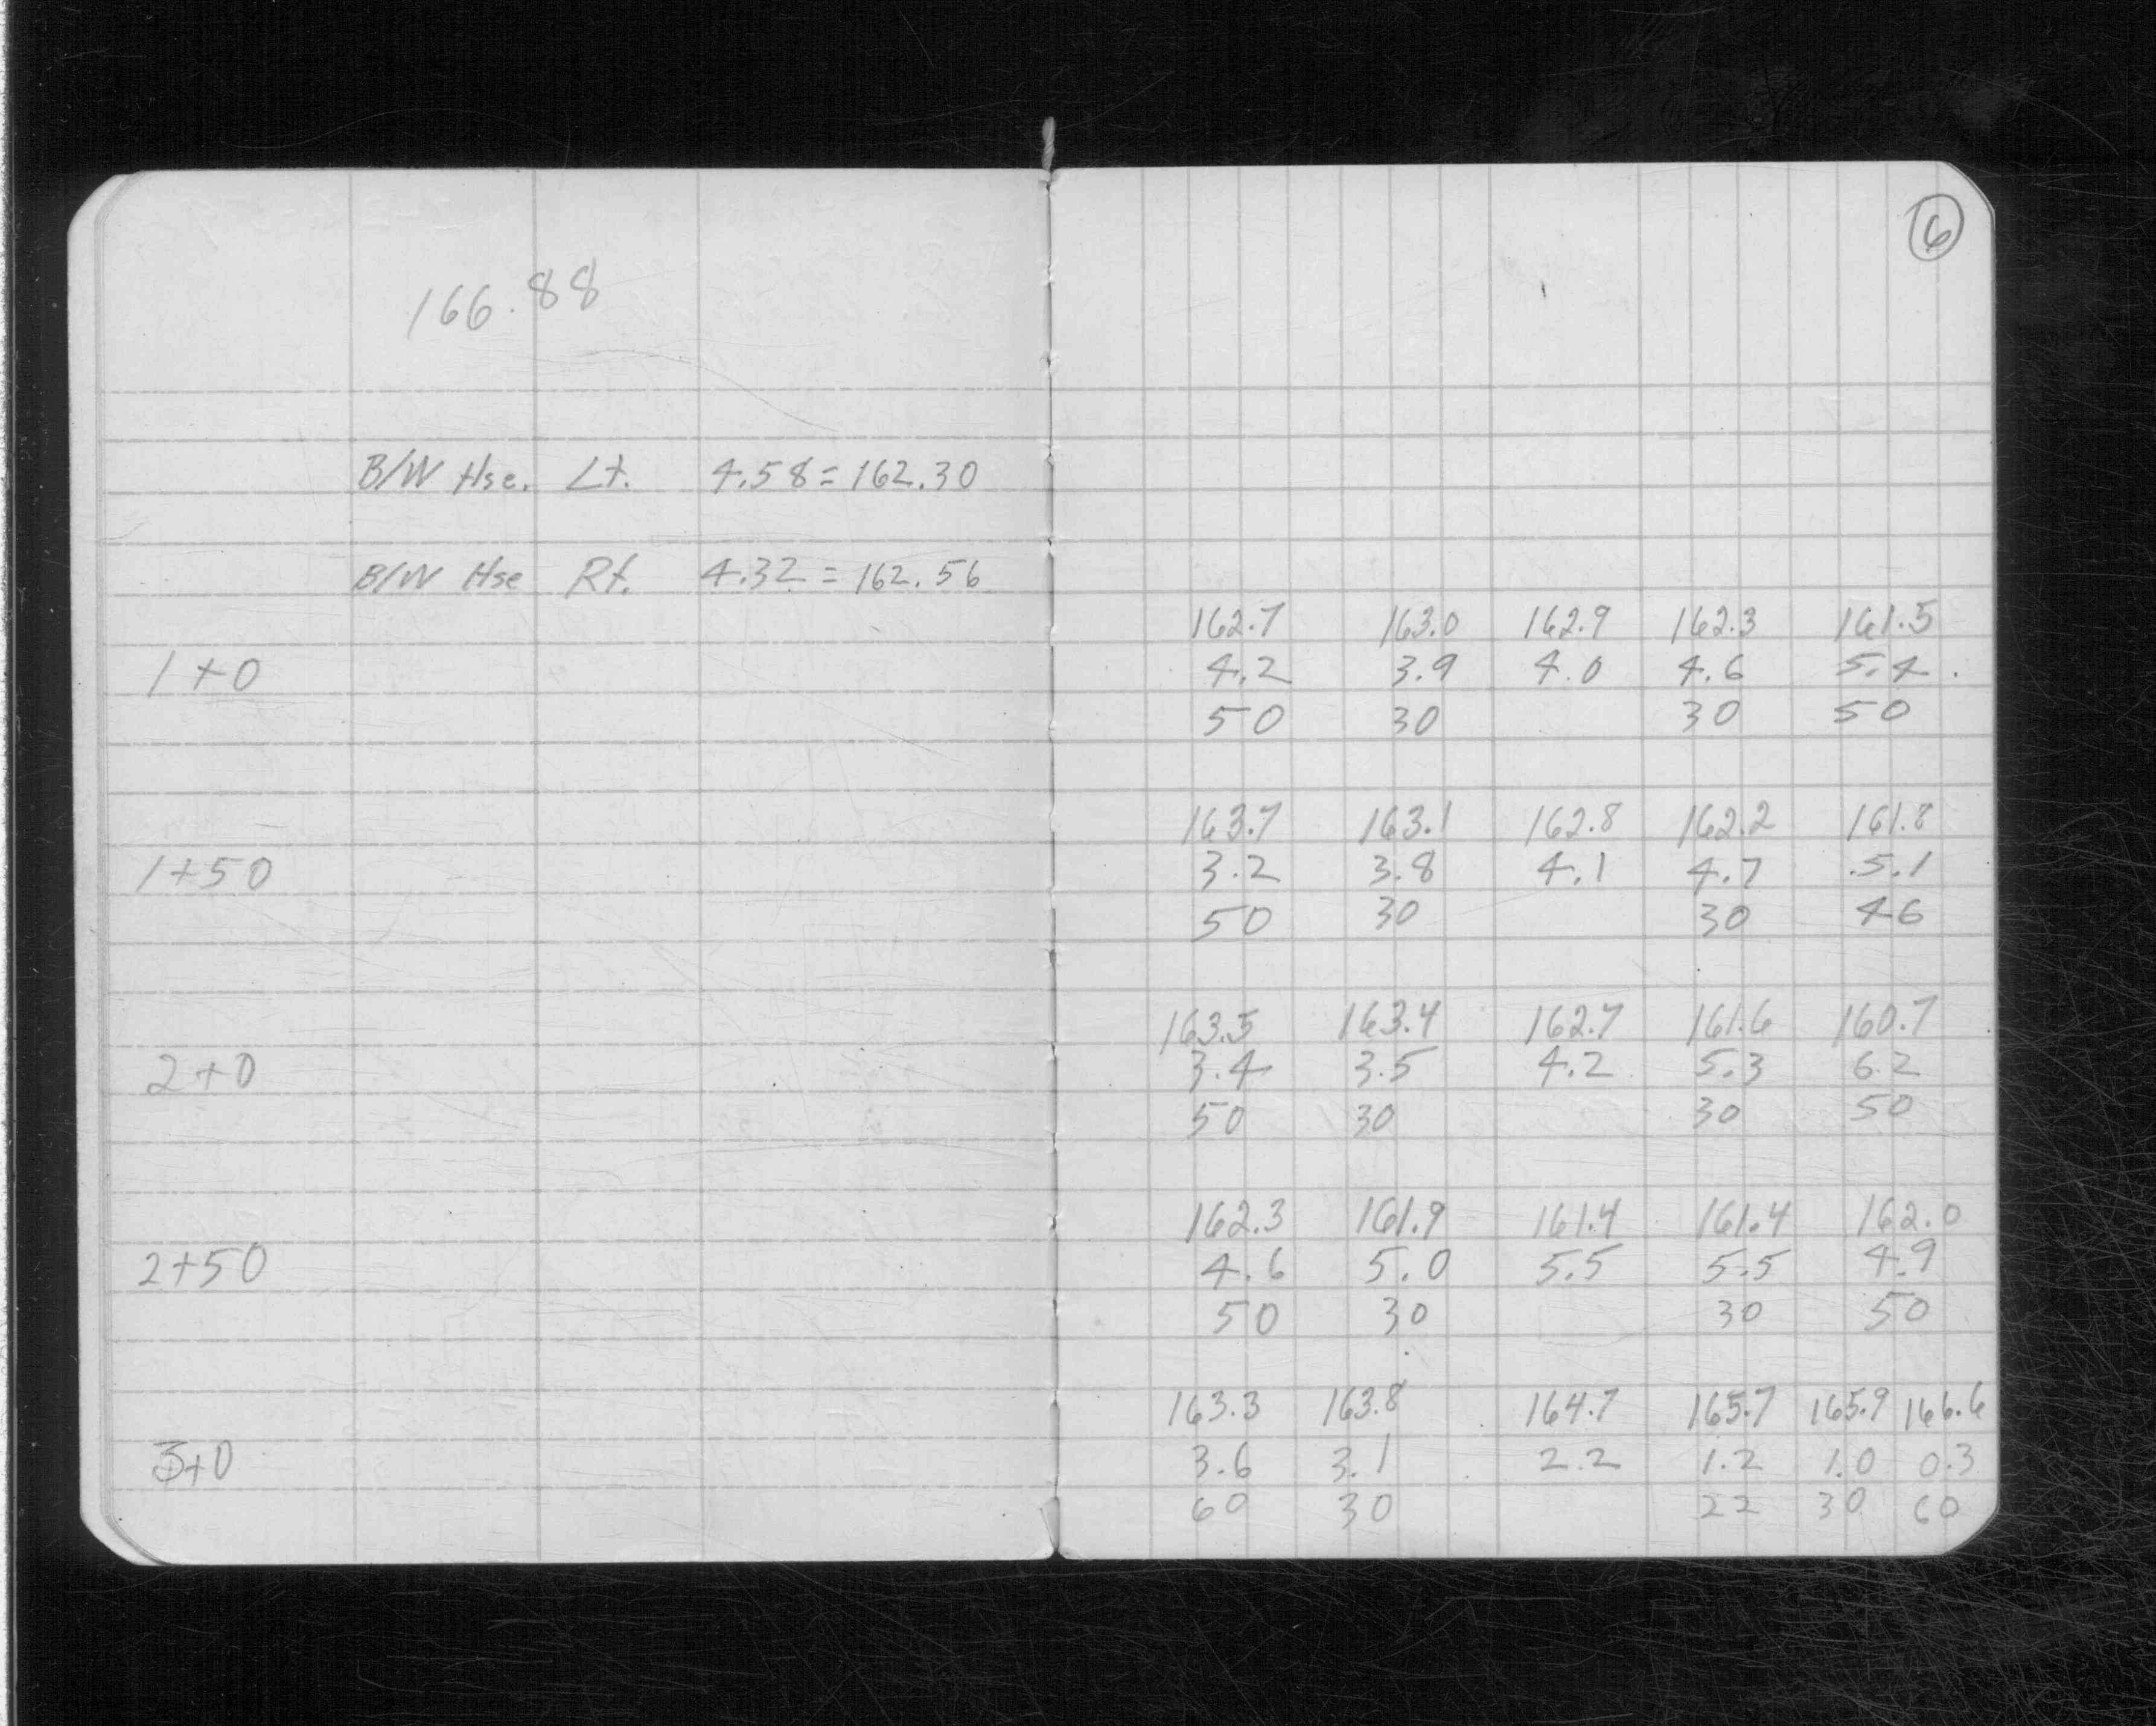 6
166.88
B/W Hse. Lt. 4.58 = 162.30
B/W Hse Rt. 4.32 = 162.56
162.7 163.0 162.9 162.3 161.5
1+0 4.2 3.9 4.0 4.6 5.4
50 30 30 50
163.7 163.1 162.8 162.2 161.8
1+50 3.2 3.8 4.1 4.7 5.1
50 30 30 46
163.5 163.4 162.7 161.6 160.7
2+0 3.4 3.5 4.2 5.3 6.2
50 30 30 50
162.3 161.9 161.4 161.4 162.0
2+50 4.6 5.0 5.5 5.5 4.9
50 30 30 50
163.3 163.8 164.7 165.7 165.9 166.6
3+0 3.6 3.1 2.2 1.2 1.0 0.3
60 30 22 30 60